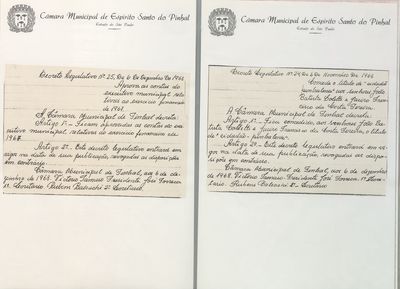 Câmara Municipal de Espírito Santo do Pinhal
Estado de São Paulo
Decreto Legislativo Nº 25, De 6 De Dezembro De 1968
Aprova as contas do
executivo municipal rela
tivas ao exercício financeiro
de 1967.
A Câmara Municipal de Pinhal decreta:
Artigo 1º - Ficam aprovadas as contas do exe
cutivo municipal relativas ao exercício financeiro de
1967.
Artigo 2º - Este decreto legislativo entrará em
vigor na data de sua publicação, revogadas as disposições
em contrário.
Câmara Municipal de Pinhal, aos 6 de de
zembro de 1968. Presidente José Fonseca
1º Secretário Rubens 2º Secretário.
Câmara Municipal de Espírito Santo do Pinhal
Estado de São Paulo
Decreto Legislativo Nº 24, De 6 De 1968
Concede o título de "cidadão
pinhalense" aos senhores João
Batista e Fran
cisco da Costa Pereira.
A Câmara Municipal de Pinhal decreta:
Artigo 1º - Fica concedido, aos senhores João Ba
tista e Francisco da Costa Pereira, o título
de "cidadão pinhalense".
Artigo 2º - Este decreto legislativo entrará em vi
gor na data de sua publicação, revogadas as dispo
sições em contrário.
Câmara Municipal de Pinhal, aos 6 de dezembro
de 1968. Presidente José Fonseca 1º Secre
tário Rubens 2º Secretário